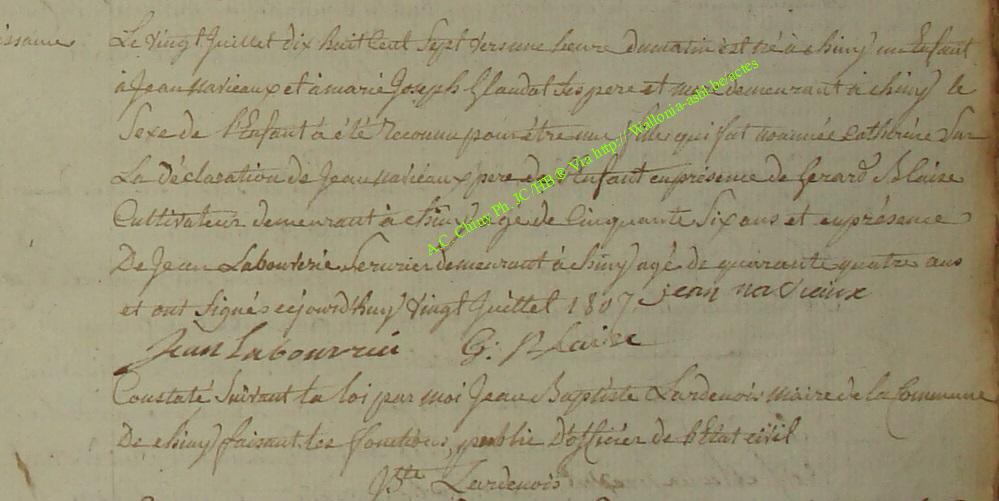 Le vingt Juillet dix huit Cent Sept vers une heure du matin est né à chiny un Enfant
à Jean Navieaux et à marie Joseph Glaudat Ses pere et mere demeurant à chiny le
Sexe de l'Enfant à été Reconnu pour être une fille qui fut nommée Catherine Sur
La déclaration de Jean Navieaux pere de l'Enfant en présence de Gerard Blaise
Cultivateur demeurant à chiny agé de Cinquante Six ans et en présence
De Jean Labouverie Serurier demeurant à chiny agé de quarante quatre ans
et ont Signés cejourd'huy vingt Juillet 1807 jean navieaux
Jean Labouverie G. Blaise
Constaté Suivant la loi par moi Jean Baptiste Lardenois maire de la Commune
De chiny faisant les fonctions public D'officier de l'Etat civil
Bte Lardenois
A.C. Chiny Ph. JC HB ® Via http://Wallonia-asbl-be/actes